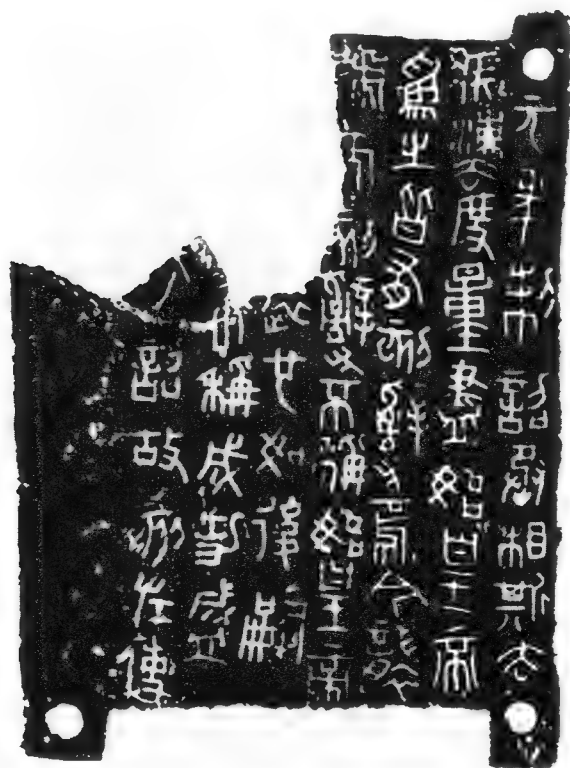 元年制詔丞相斯去
疾法度量盡始皇帝
爲之皆有刻辭焉今襲
號而刻辭不稱始皇帝
遠也如後嗣
不稱成功盛
詔故刻左使